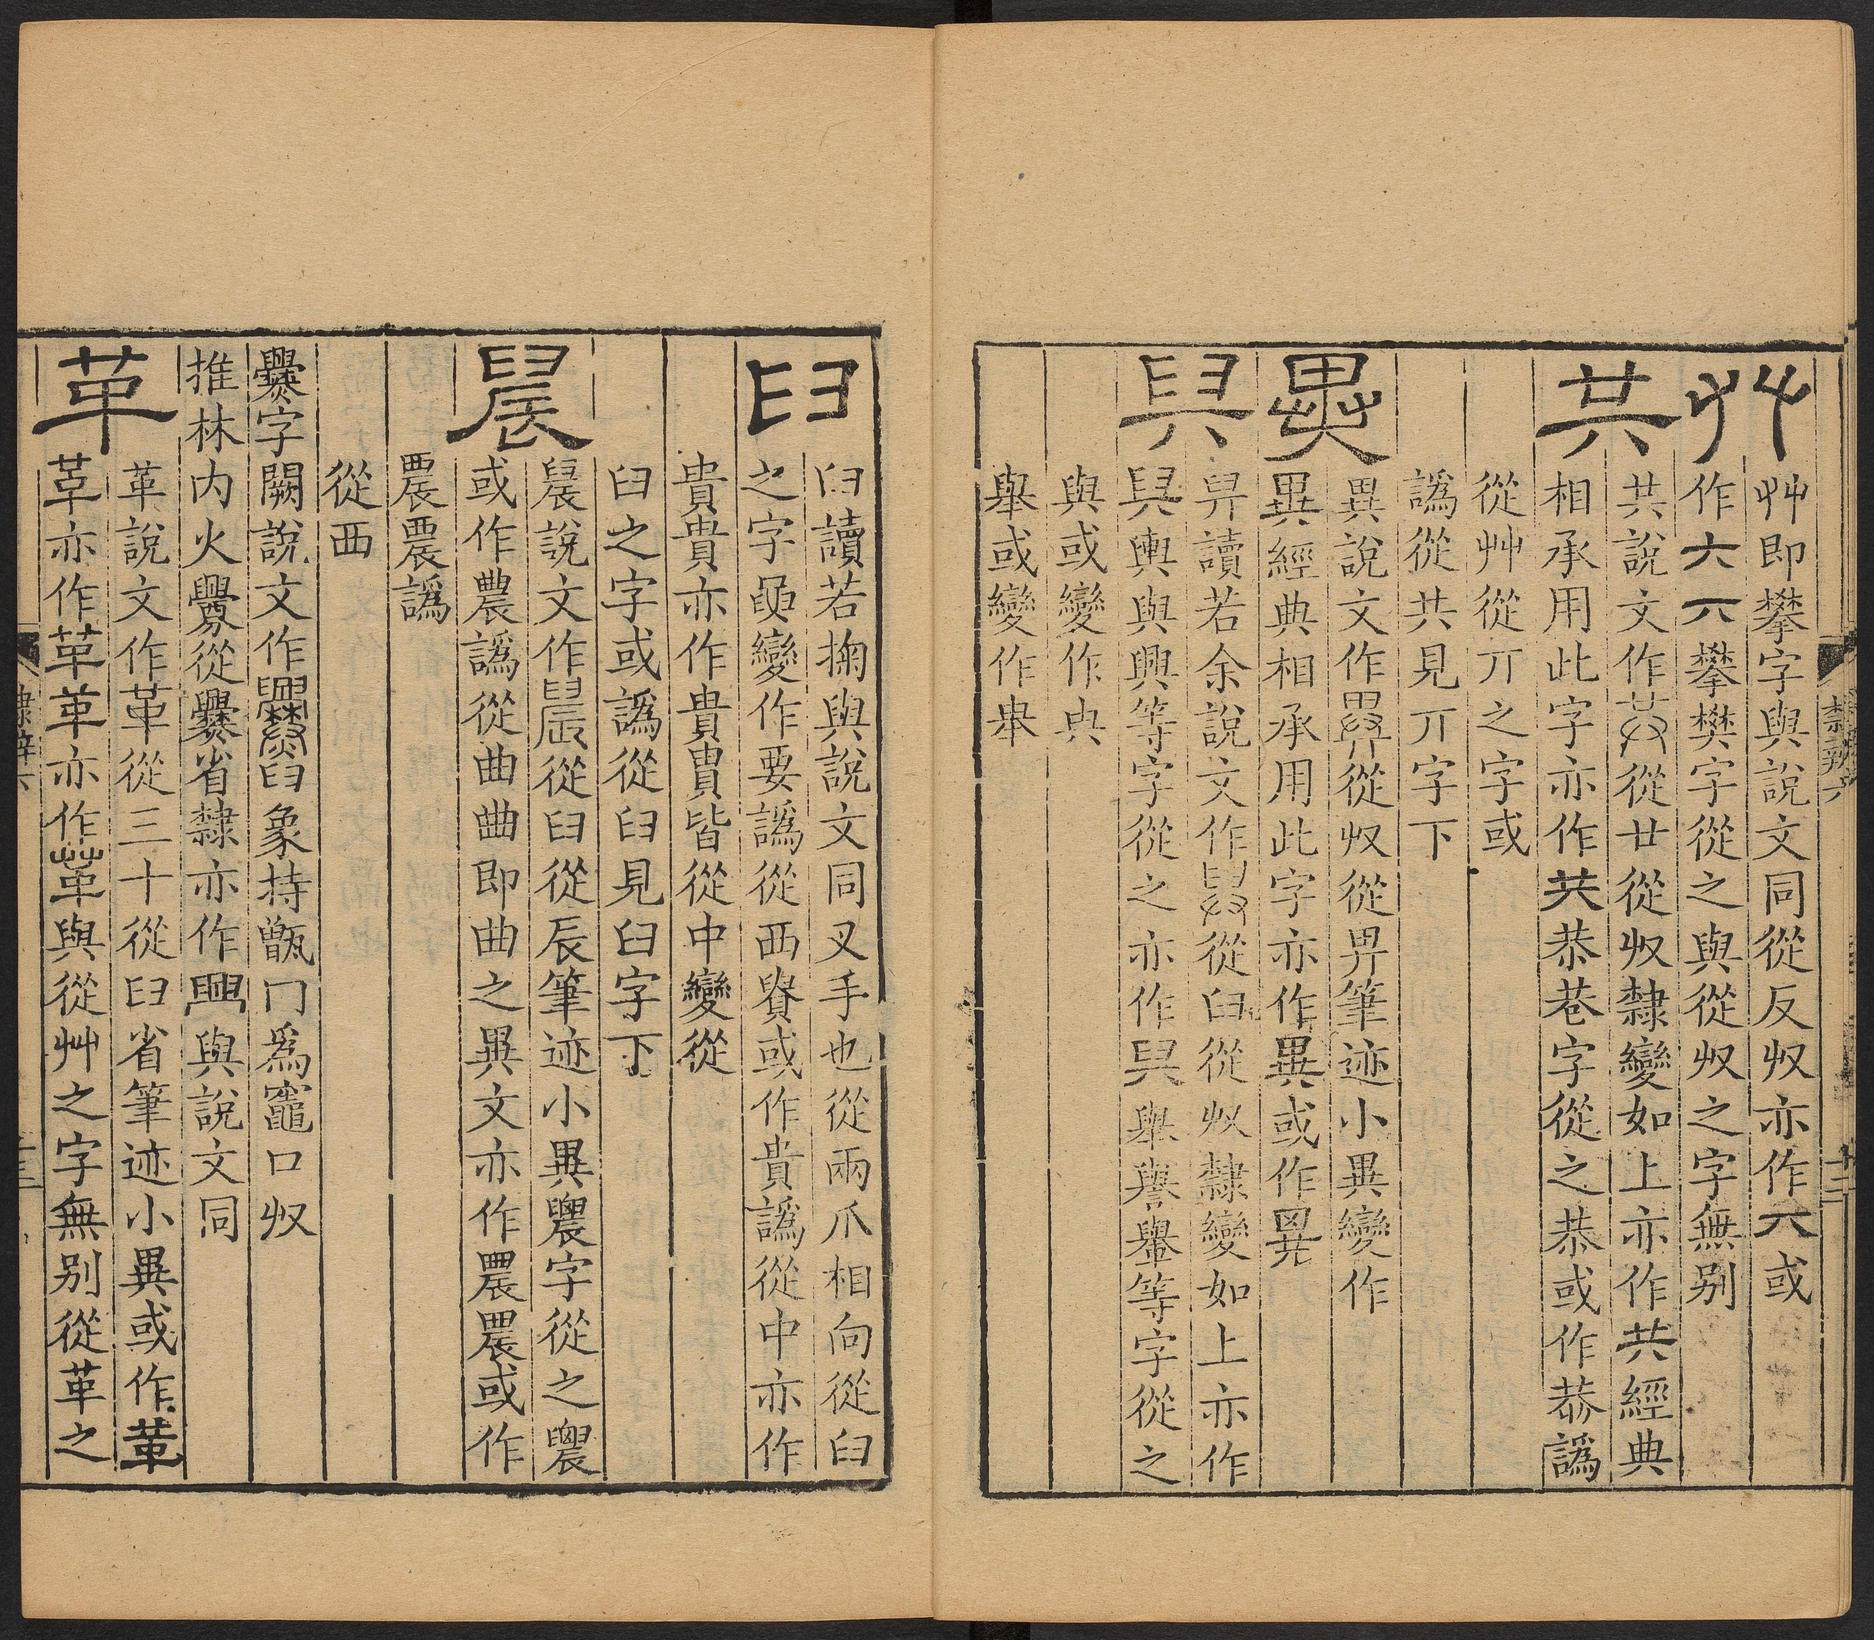 艸
艸即攀字與說文同從反𠬞亦作大或
作六𠆢攀樊字從之與從𠬞之字無别
共
共說文作從廿從𠬞隸變如上亦作共經典
相承用此字亦作共恭巷字從之恭或作㳟譌
從艸從丌之字或
譌從共見丌字下
異
異說文作從𠬞從畀筆迹小異變作
異經典相承用此字亦作異或作
舁
舁讀若余說文作從𦥑從𠬞隸變如上亦作
輿與興等字從之亦作舉譽轝等字從之
與或變作𠔏
舉或變作㪯
𦥑
𦥑讀若掬與說文同叉手也從兩爪相向從𦥑
之字變作要譌從西或作貴譌從中亦作
貴貴亦作貴貴皆從中變從
𦥑之字或譌從臼見臼字下
晨
晨說文作從𦥑從辰筆迹小異農字從之農
或作農譌從曲曲即曲之異文亦作農農或作
農農譌
從西
爨字闕說文作𦥑象持甑冂爲竈口𠬞
推林内火釁從爨省隸亦作興與說文同
革
革說文作革從三十從𦥑省筆迹小異或作革
革亦作革革亦作革與從艸之字無别從革之
隸辨六
十二
十三